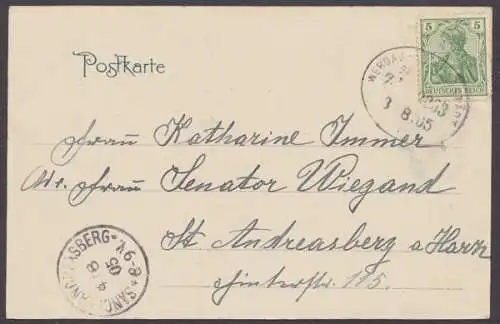 Postkarte
5 5
DEUTSCHES REICH
WERDA
3 8.05
Frau Katharine Immer
Adr. Frau Senator Wiegand
St Andreasberg a Harz
Hinterstr 115.
SANCT ANDREASBERG
4 8
05
6-9V.